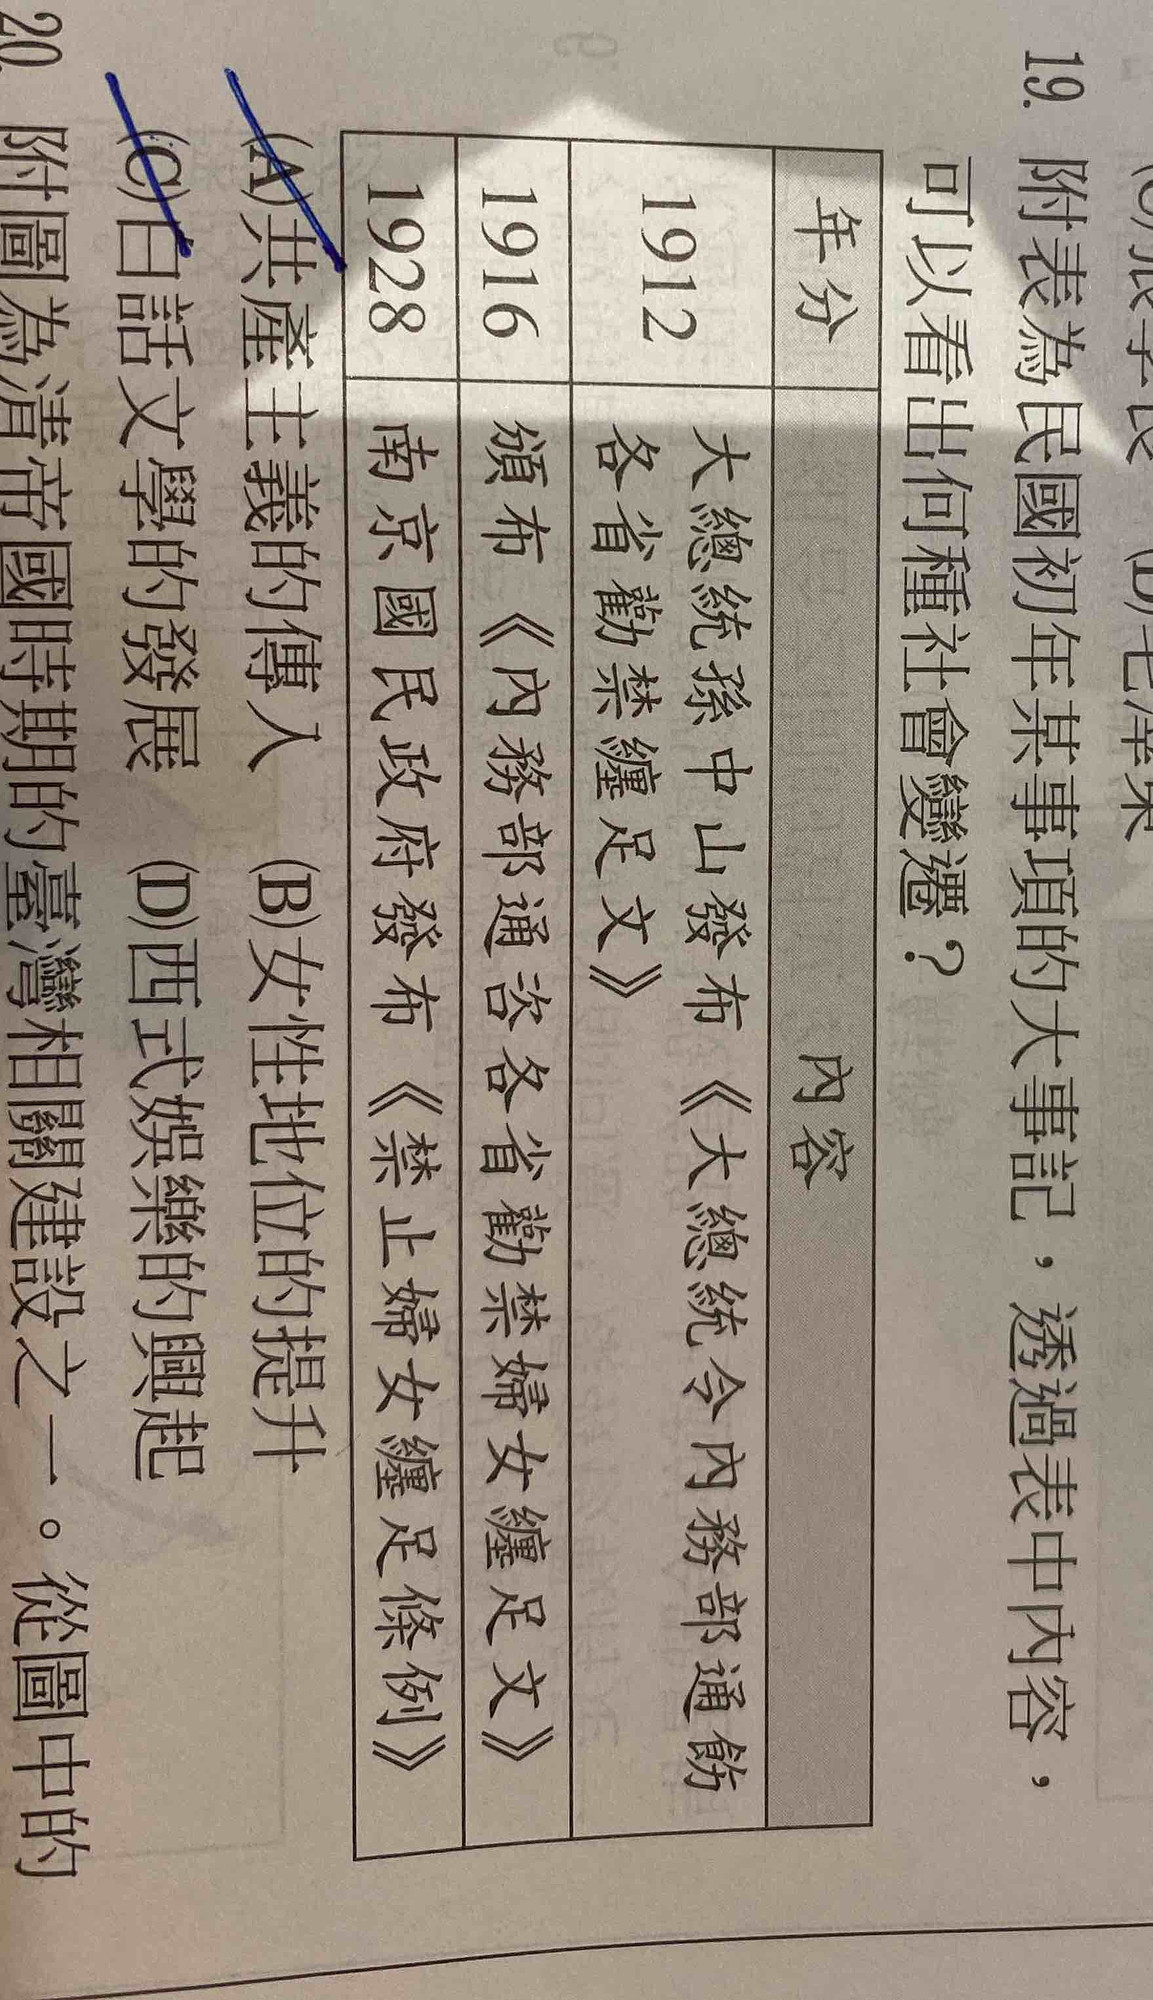 (D)毛澤東
19. 附表為民國初年某事項的大事記,透過表中內容,
可以看出何種社會變遷?
年分 內容
1912 大總統孫中山發布《大總統令內務部通飭
各省勸禁纏足文》
1916 頒布《內務部通咨各省勸禁婦女纏足文》
1928 南京國民政府發布《禁止婦女纏足條例》
(A)共產主義的傳入 (B)女性地位的提升
(C)白話文學的發展 (D)西式娛樂的興起
20. 附圖為清帝國時期的臺灣相關建設之一。從圖中的